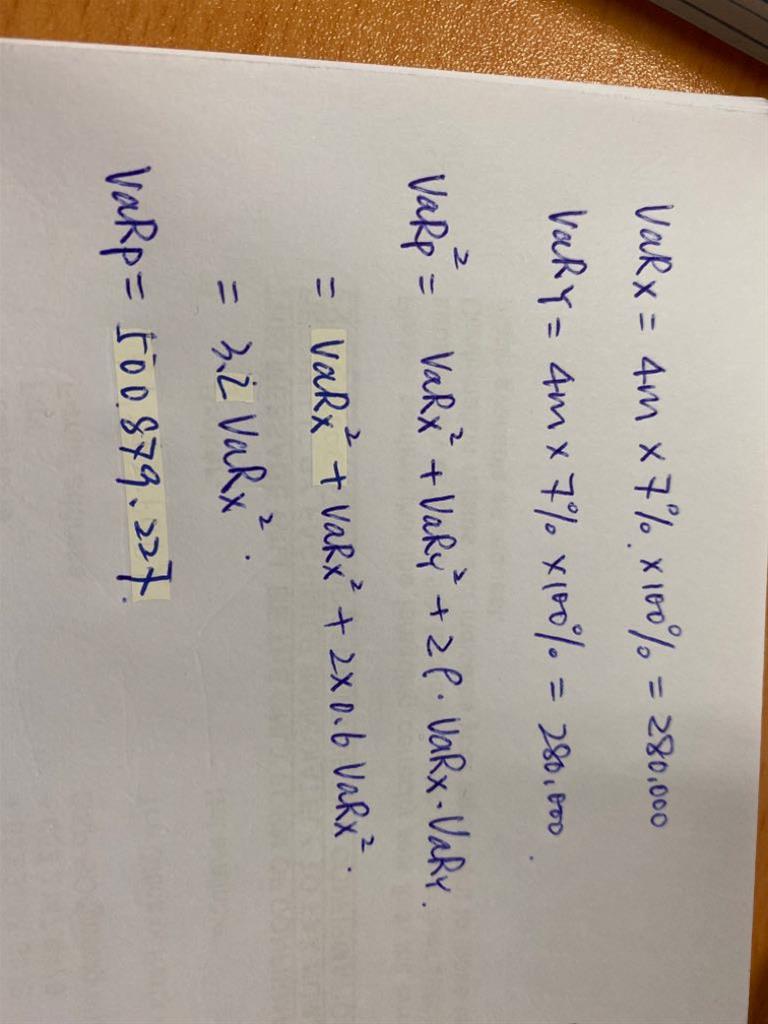 VaRx = 4m x 7% x100% = 280,000
VaRY = 4m x 7% x100% = 280,000.
VaRp² = VaRx² + VaRY² + 2ρ. VaRx. VaRY.
= VaRx² + VaRx² + 2x0.6 VaRx².
= 3.2 VaRx².
VaRp = 500.879.227.